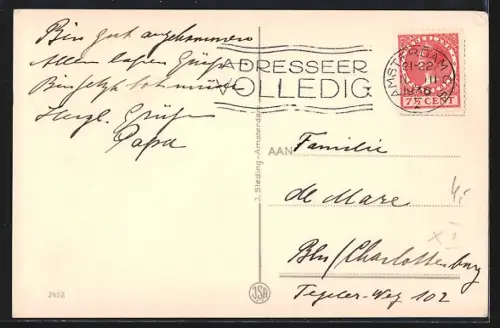 Bin gut angekommen
Allen lieben Grüße
Bin jetzt
Herzl. Grüße
Papa
ADRESSEER
VOLLEDIG
AMSTERDAM C.S.
21-22
III
1936
NEDERLAND
7½ CENT
J. Sleding - Amsterdam
AAN
Familie
de Mare
Bln/Charlottenburg
Tegeler-Weg 102
3452
JSA